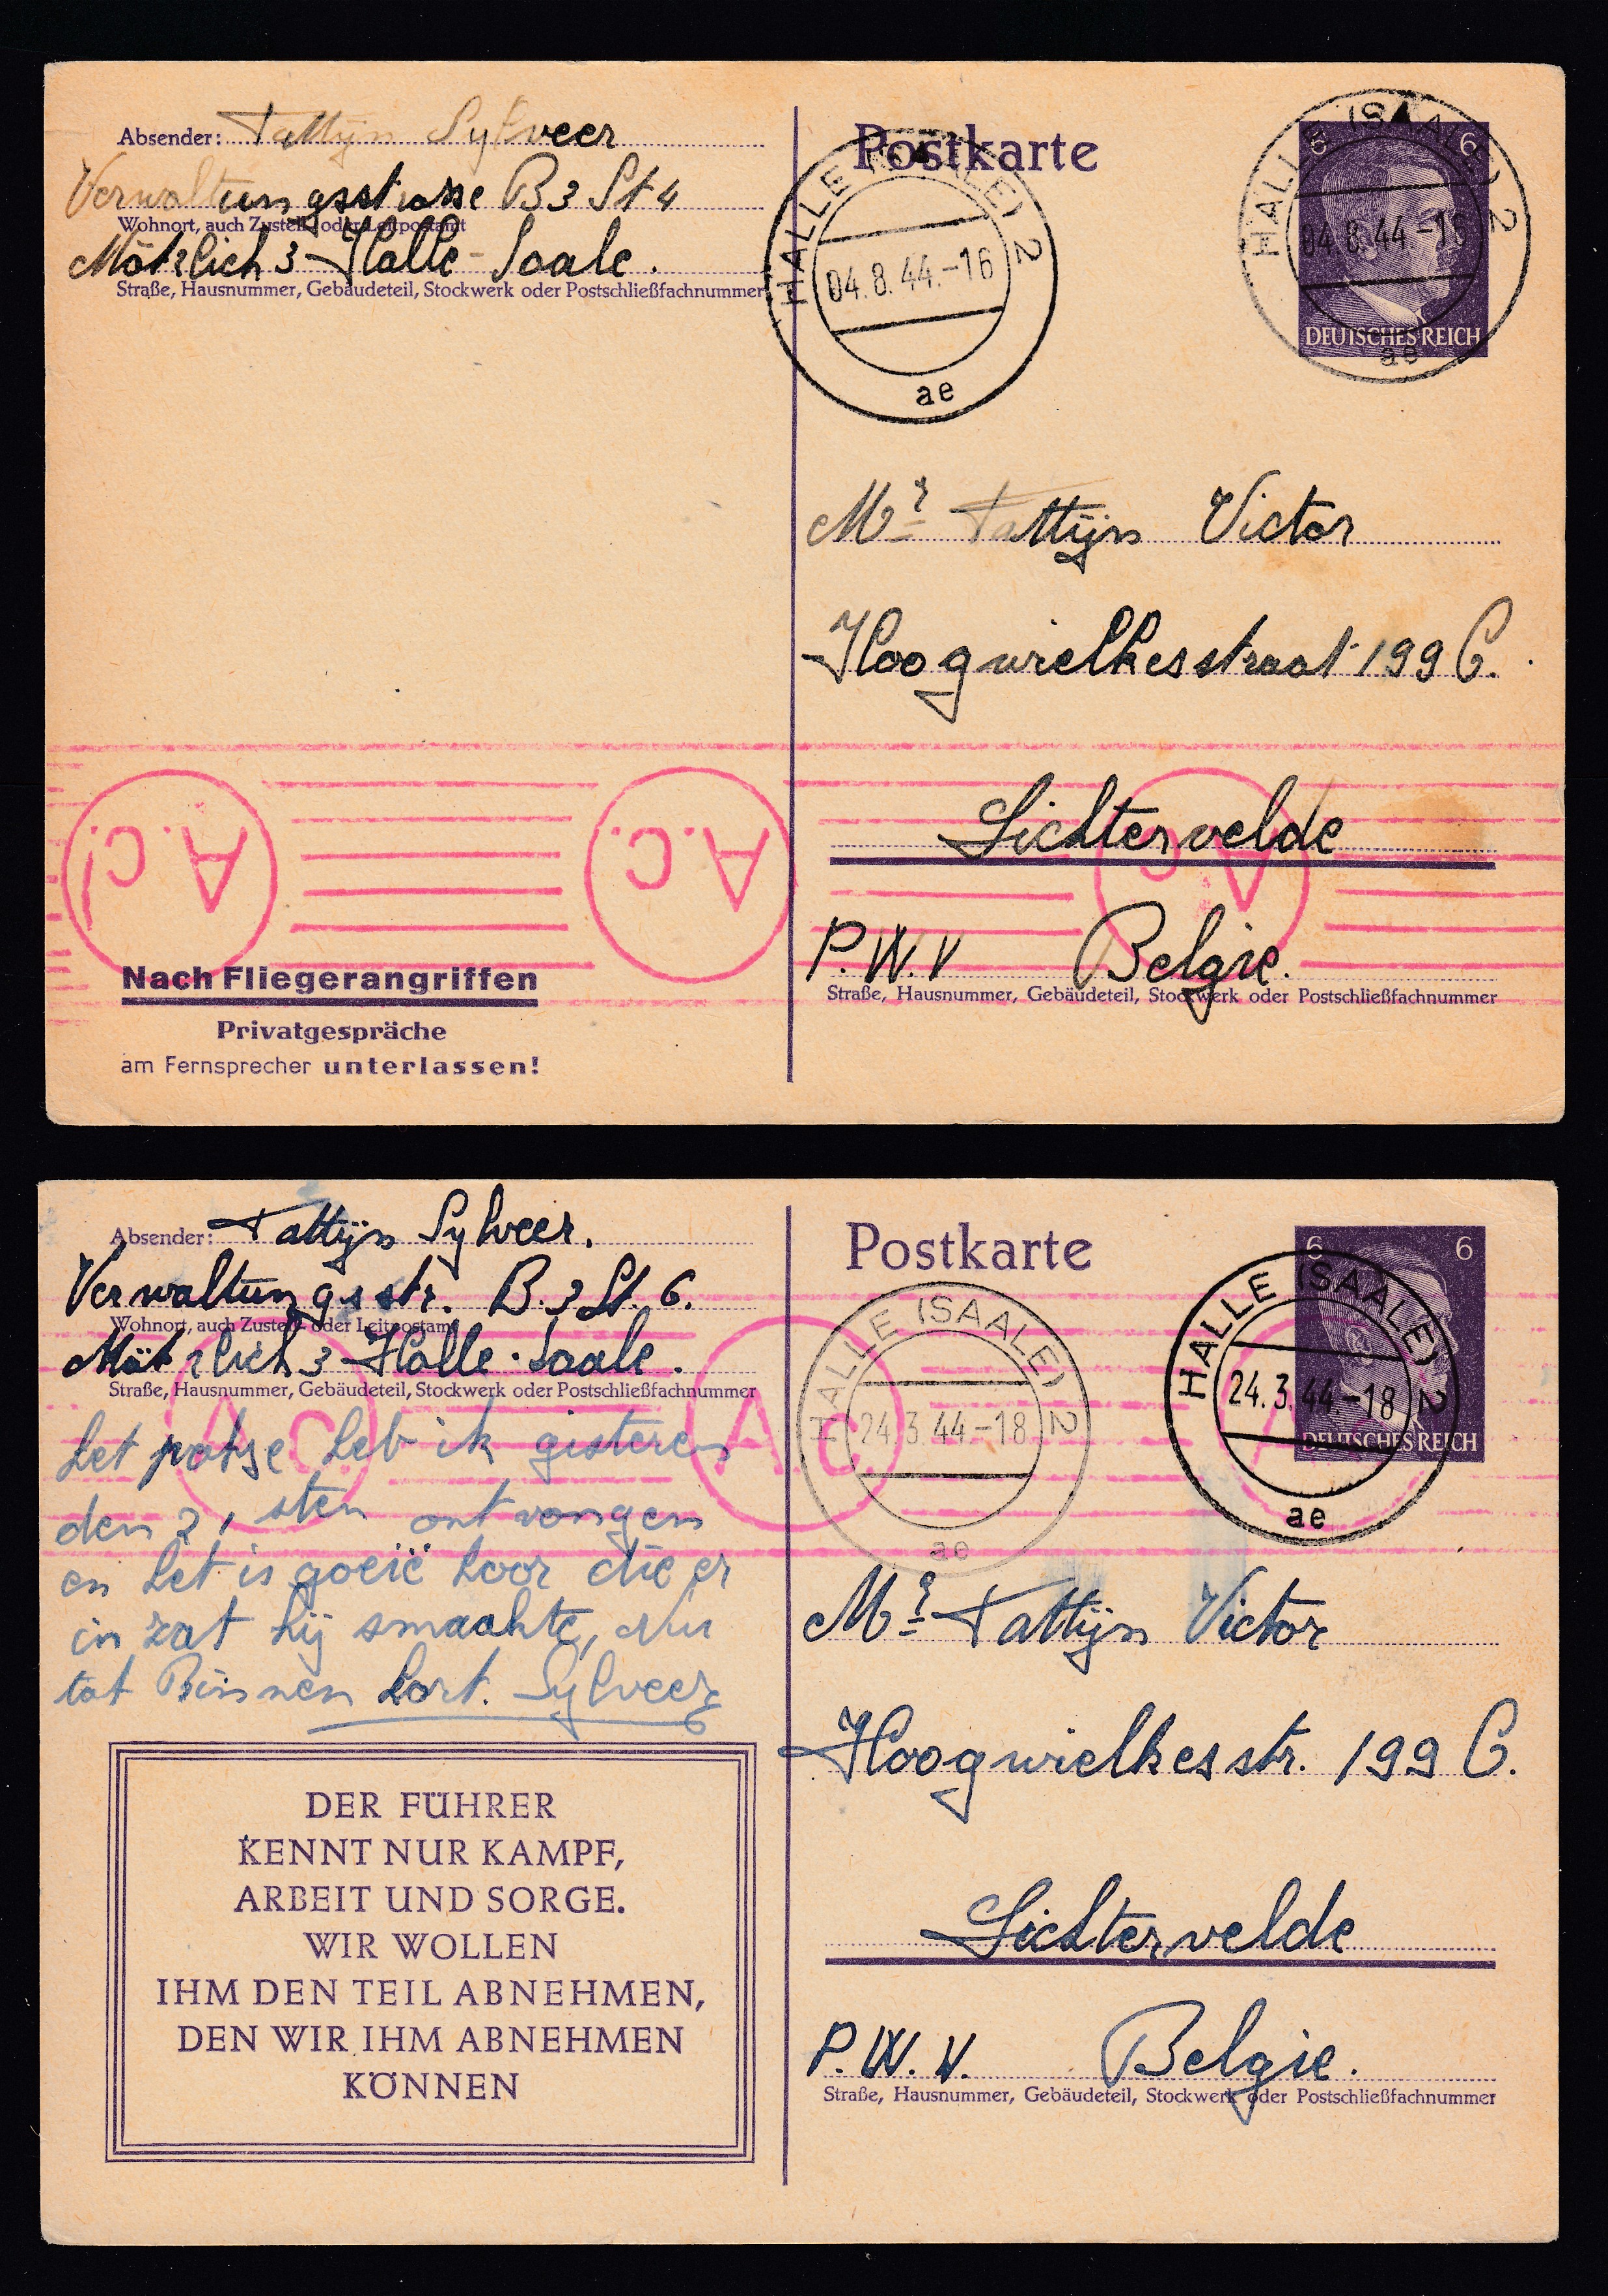 Absender: Tattijn Sylveer
Verwaltungsstrasse B3 St 4
Wohnort, auch Zustell- oder Leitpostamt
Mötzlich 3 Halle-Saale.
Straße, Hausnummer, Gebäudeteil, Stockwerk oder Postschließfachnummer
Postkarte
HALLE (SAALE) 2
04.8.44.-16
ae
6 6
DEUTSCHES REICH
HALLE (SAALE) 2
04.8.44-16
ae
Mr Tattijn Victor
Hoogwielkesstraat 199 C.
Lichtervelde
P.W.V Belgie.
Straße, Hausnummer, Gebäudeteil, Stockwerk oder Postschließfachnummer
A.C.
A.C.
A.C
Nach Fliegerangriffen
Privatgespräche
am Fernsprecher unterlassen!
Absender: Tattijn Sylveer.
Verwaltungsstr. B.3 St. 6.
Wohnort, auch Zustell- oder Leitpostamt
Mötzlich 3 Halle-Saale.
Straße, Hausnummer, Gebäudeteil, Stockwerk oder Postschließfachnummer
Postkarte
HALLE (SAALE) 2
24.3.44-18
ae
6 6
DEUTSCHES REICH
HALLE (SAALE) 2
24.3.44.-18
ae
A.C.
A.C.
Het pakje heb ik gisteren
den sten ontvangen
en het is goeië hoor die er
in zat hij smaakte, Nu
tot Binnen kort. Sylveer
Mr Tattijn Victor
Hoogwielkesstr. 199 C.
Lichtervelde
P.W.V. Belgie.
Straße, Hausnummer, Gebäudeteil, Stockwerk oder Postschließfachnummer
DER FÜHRER
KENNT NUR KAMPF,
ARBEIT UND SORGE.
WIR WOLLEN
IHM DEN TEIL ABNEHMEN,
DEN WIR IHM ABNEHMEN
KÖNNEN